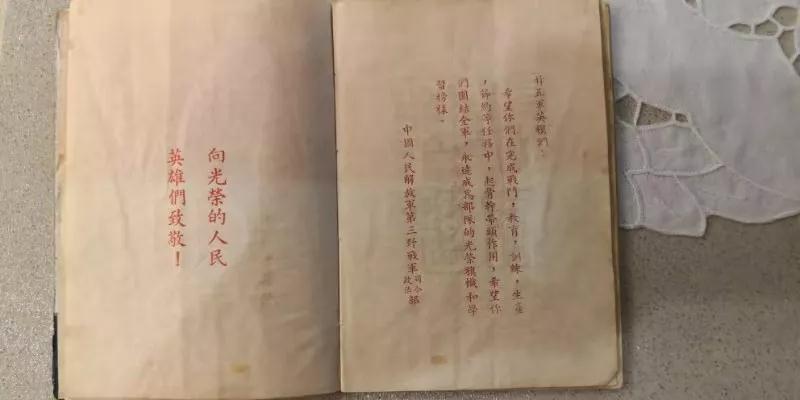 廿五軍英模們：
希望你們在完成戰鬥，教育，訓練，生產
，節約等任務中，起骨幹帶頭作用，希望你
們團結全軍，永遠成爲部隊的光榮旗幟和學
習榜樣。
中國人民解放軍第三野戰軍司令政治部
向光榮的人民
英雄們致敬！